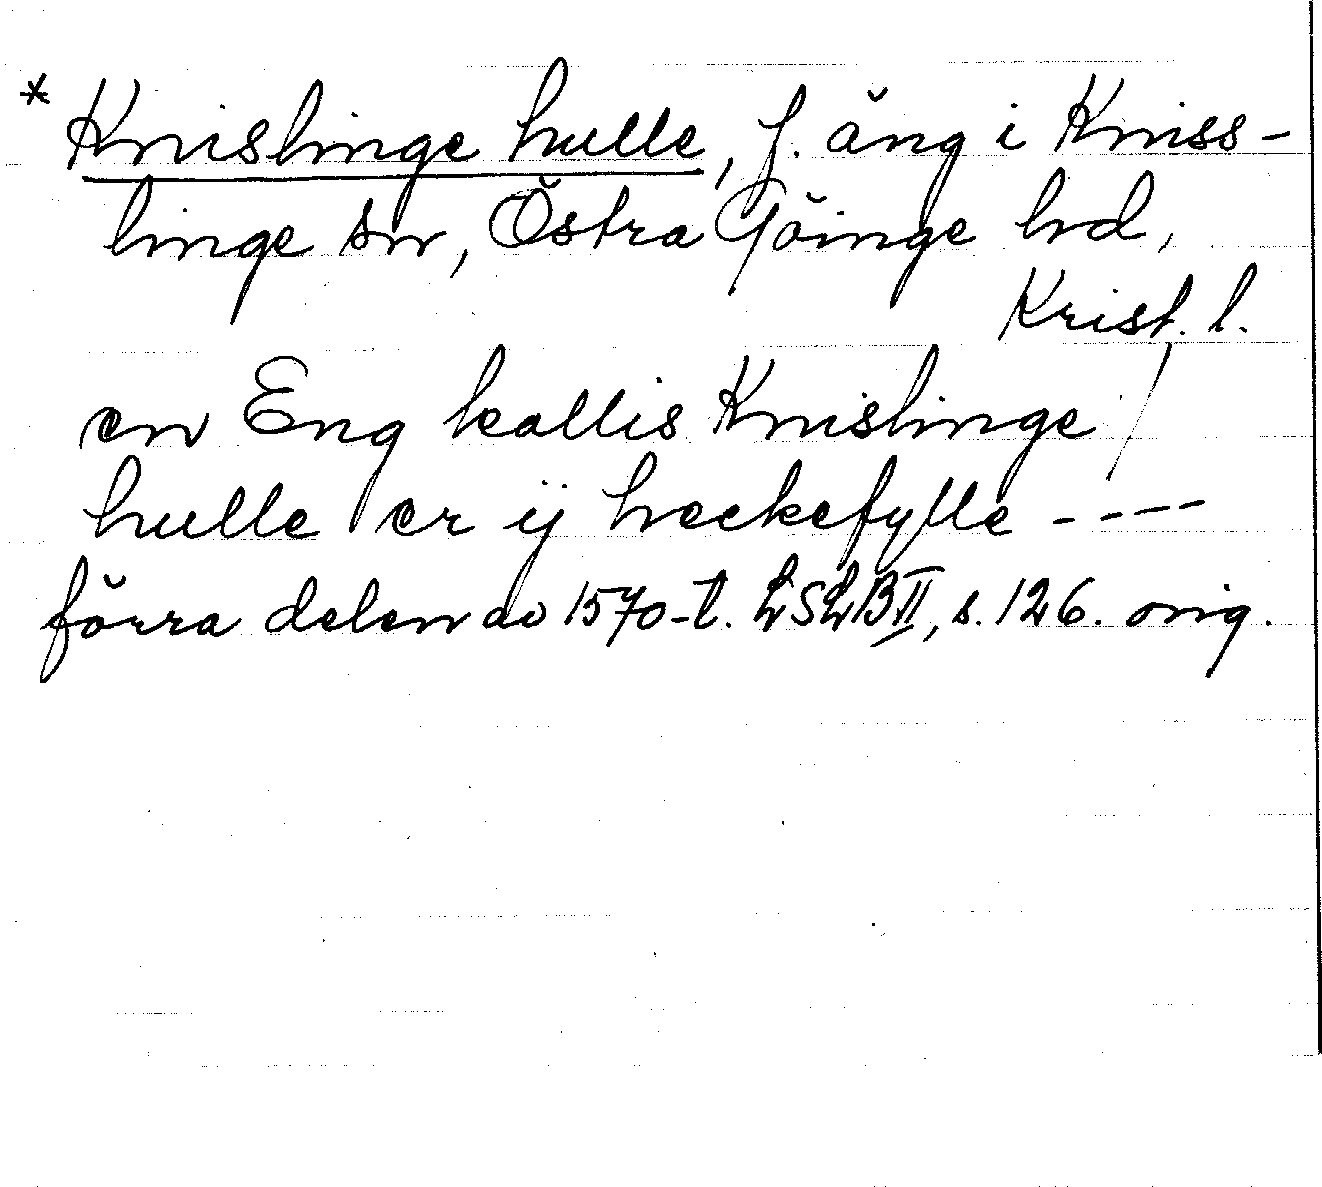 * Knislinge hulle, f. äng i Kniss-
linge sn, Östra Göinge hd,
Krist. l.
en Eng kallis Knislinge /
hulle er ij heckefylle ----
förra delen av 1570-t. LSLB II, s. 126. orig.